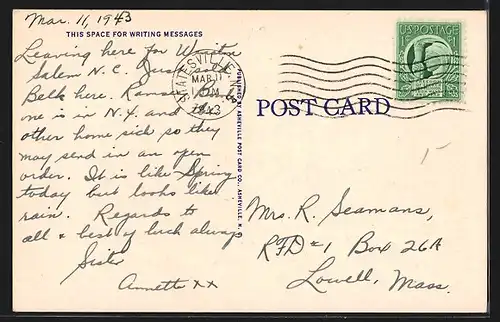 Mar. 11, 1943
THIS SPACE FOR WRITING MESSAGES
Leaving here for Winston
Salem N.C. Just
Belk here.
one is in N.Y. and
other home sick so they
may send in an open
order. It is like Spring
today but looks like
rain. Regards to
all & best of luck always
Sister
Annette xx
STATESVILLE, N.
MAR 11
1943
PUBLISHED BY ASHEVILLE POST CARD CO., ASHEVILLE, N.C.
U.S. POSTAGE
POST CARD
Mrs. R. Seamans,
RFD #1 Box 26A
Lowell, Mass.